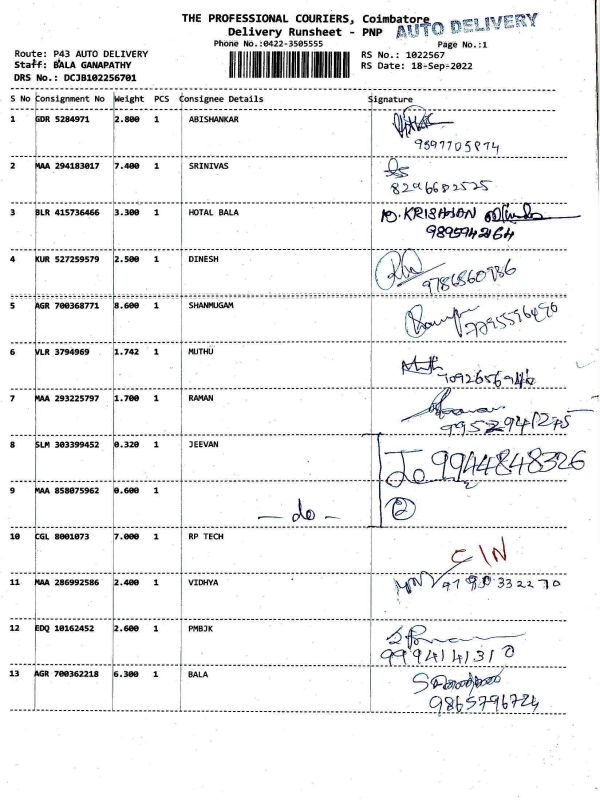 THE PROFESSIONAL COURIERS, Coimbatore
AUTO DELIVERY
Delivery Runsheet - PNP
Phone No.:0422-3505555
Page No.:1
Route: P43 AUTO DELIVERY
RS No.: 1022567
Staff: BALA GANAPATHY
RS Date: 18-Sep-2022
DRS No.: DCJB102256701
S No Consignment No Weight PCS Consignee Details Signature
1 GDR 5284971 2.800 1 ABISHANKAR
9597705874
2 MAA 294183017 7.400 1 SRINIVAS
8296682525
3 BLR 415736466 3.300 1 HOTAL BALA KRISHNAN
9895942164
4 KUR 527259579 2.500 1 DINESH
9786560986
5 AGR 700368771 8.600 1 SHANMUGAM
6 VLR 3794969 1.742 1 MUTHU
7 MAA 293225797 1.700 1 RAMAN
9952941275
8 SLM 303399452 0.320 1 JEEVAN
9944848326
9 MAA 858075962 0.600 1 - do - 2
10 CGL 8001073 7.000 1 RP TECH
C/N
11 MAA 286992586 2.400 1 VIDHYA
9790332270
12 EDQ 10162452 2.600 1 PMBJK
9994141310
13 AGR 700362218 6.300 1 BALA
9865796724